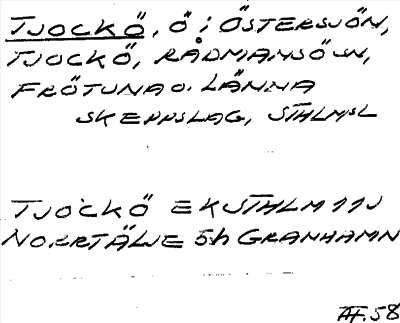 TJOCKÖ, Ö i ÖSTERSJÖN,
TJOCKÖ, RÅDMANSÖ SN,
FRÖTUNA O. LÄNNA
SKEPPSLAG, STHLMS L
TJOCKÖ EK STHLM 11J
NORRTÄLJE 5h GRANHAMN
AF. 58